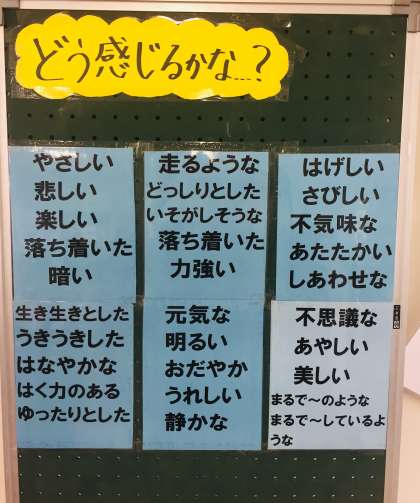 どう感じるかな…?
やさしい
悲しい
楽しい
落ち着いた
暗い
走るような
どっしりとした
いそがしそうな
落ち着いた
力強い
はげしい
さびしい
不気味な
あたたかい
しあわせな
生き生きとした
うきうきした
はなやかな
はく力のある
ゆったりとした
元気な
明るい
おだやか
うれしい
静かな
不思議な
あやしい
美しい
まるで~のような
まるで~しているよ
うな